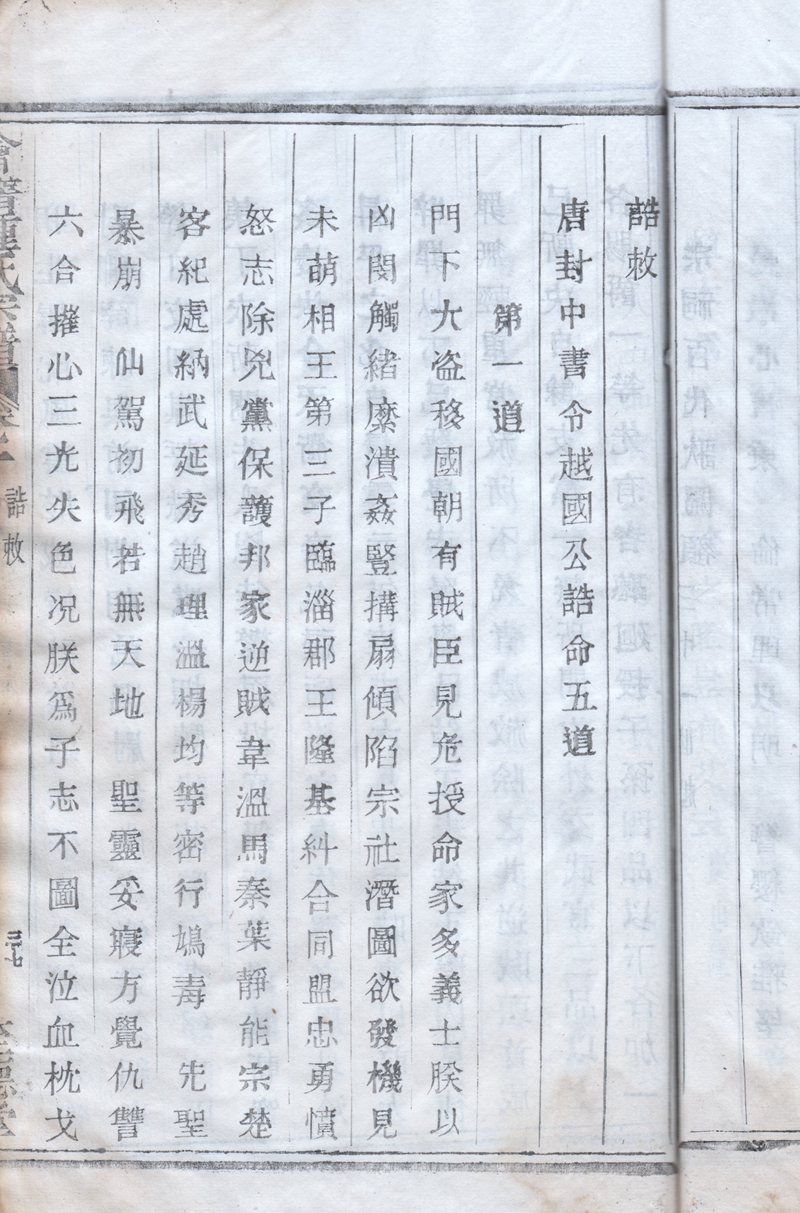 誥敕
唐封中書令越國公誥命五道
第一道
門下大盜移國朝有賊臣見危授命家多義士朕以
凶閔觸緒糜潰姦豎搆扇傾陷宗社潛圖欲發機見
未萌相王第三子臨淄郡王隆基糾合同盟忠勇憤
怒志除兇黨保護邦家逆賊韋溫馬秦葉靜能宗楚
客紀處納武延秀趙理溫楊均等密行鴆毒　先聖
暴崩　仙駕初飛若無天地　聖靈妥寢方覺仇讐
六合摧心三光失色况朕爲子志不圖全泣血枕戈
氏宗譜
誥敕